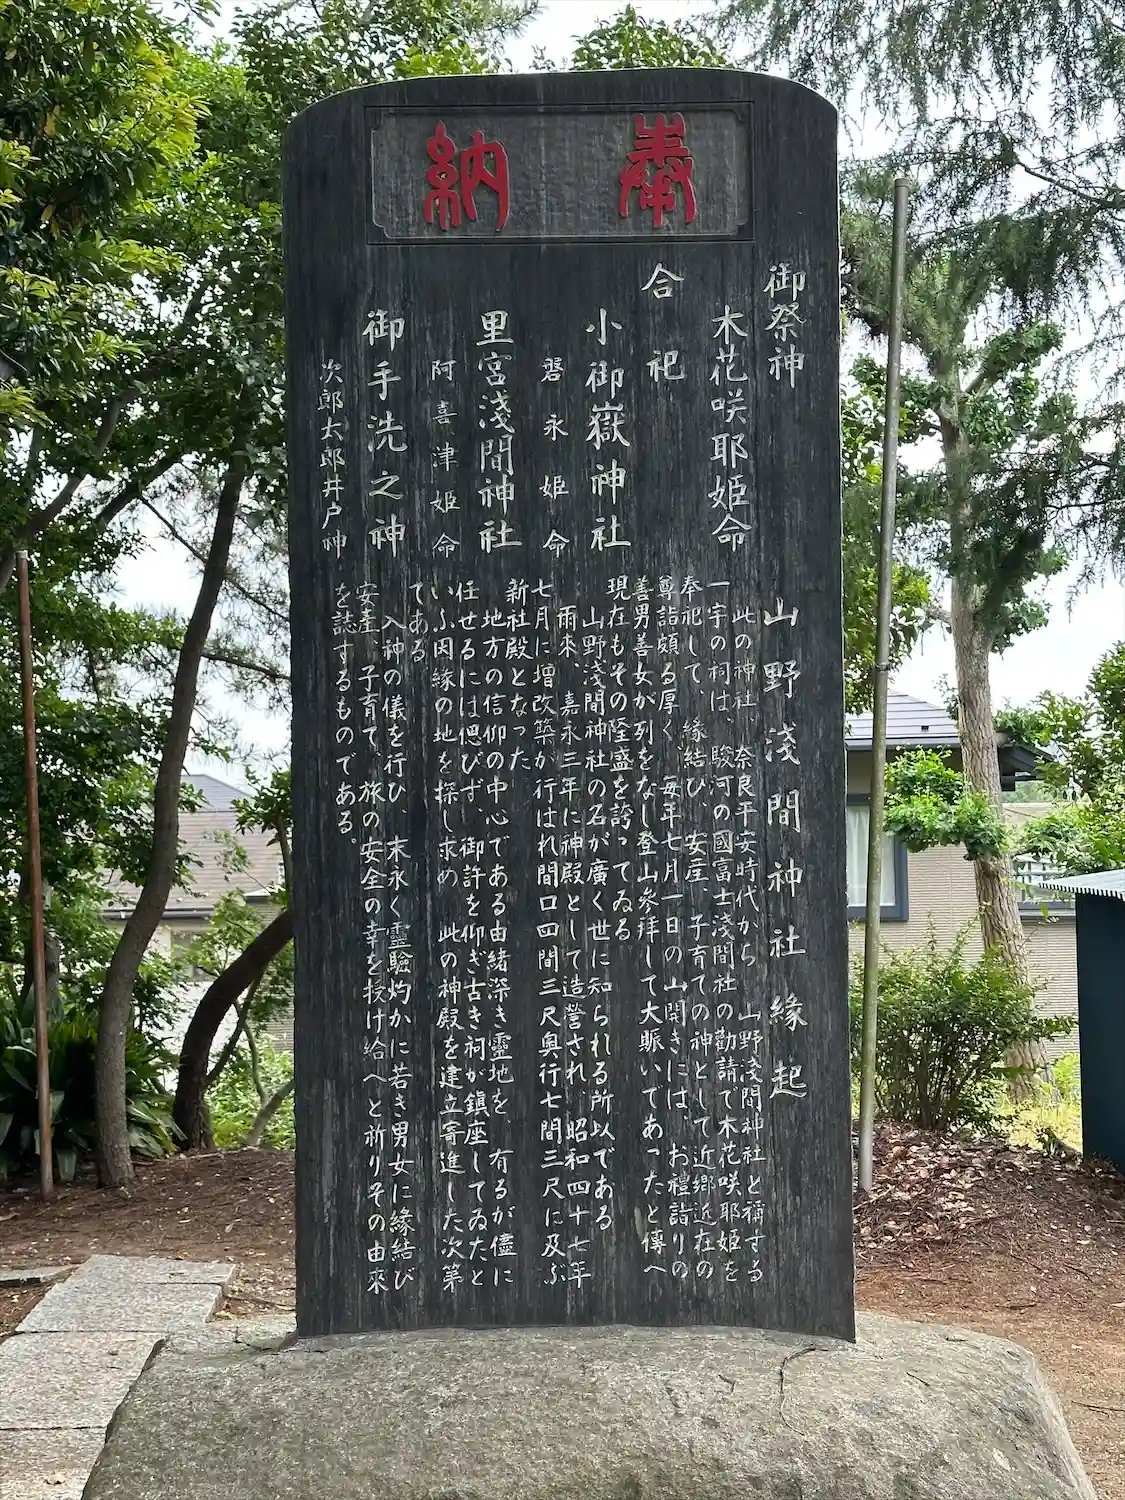 奉納
御祭神
木花咲耶姫命
合祀
小御嶽神社
磐永姫命
里宮浅間神社
阿喜津姫命
御手洗之神
次郎太郎井戸神
山野浅間神社縁起
此の神社、奈良平安時代から 山野浅間神社と稱する
一宇の祠は、駿河の國富士浅間社の勸請で木花咲耶姫を
奉祀して、縁結び、安産、子育ての神として近郷近在の
尊詣頗る厚く 毎年七月一日の山開きには、お禮詣りの
善男善女が列をなし登山参拝して大賑いであったと傳へ
現在もその隆盛を誇ってゐる
山野浅間神社の名が廣く世に知られる所以である
雨来、嘉永三年に神殿として造営され 昭和四十七年
七月に増改築が行はれ間口四間三尺奥行七間三尺に及ぶ
新社殿となった
地方の信仰の中心である由緒深き靈地を、有るが儘に
任せるには偲びず、御許を仰ぎ古き祠が鎮座してゐたと
いふ因縁の地を探し求め 此の神殿を建立寄進した次第
である
入神の儀を行ひ、末永く靈驗灼かに若き男女に縁結び
安産、子育て、旅の安全の幸を授け給へと祈りその由來
を誌するものである。